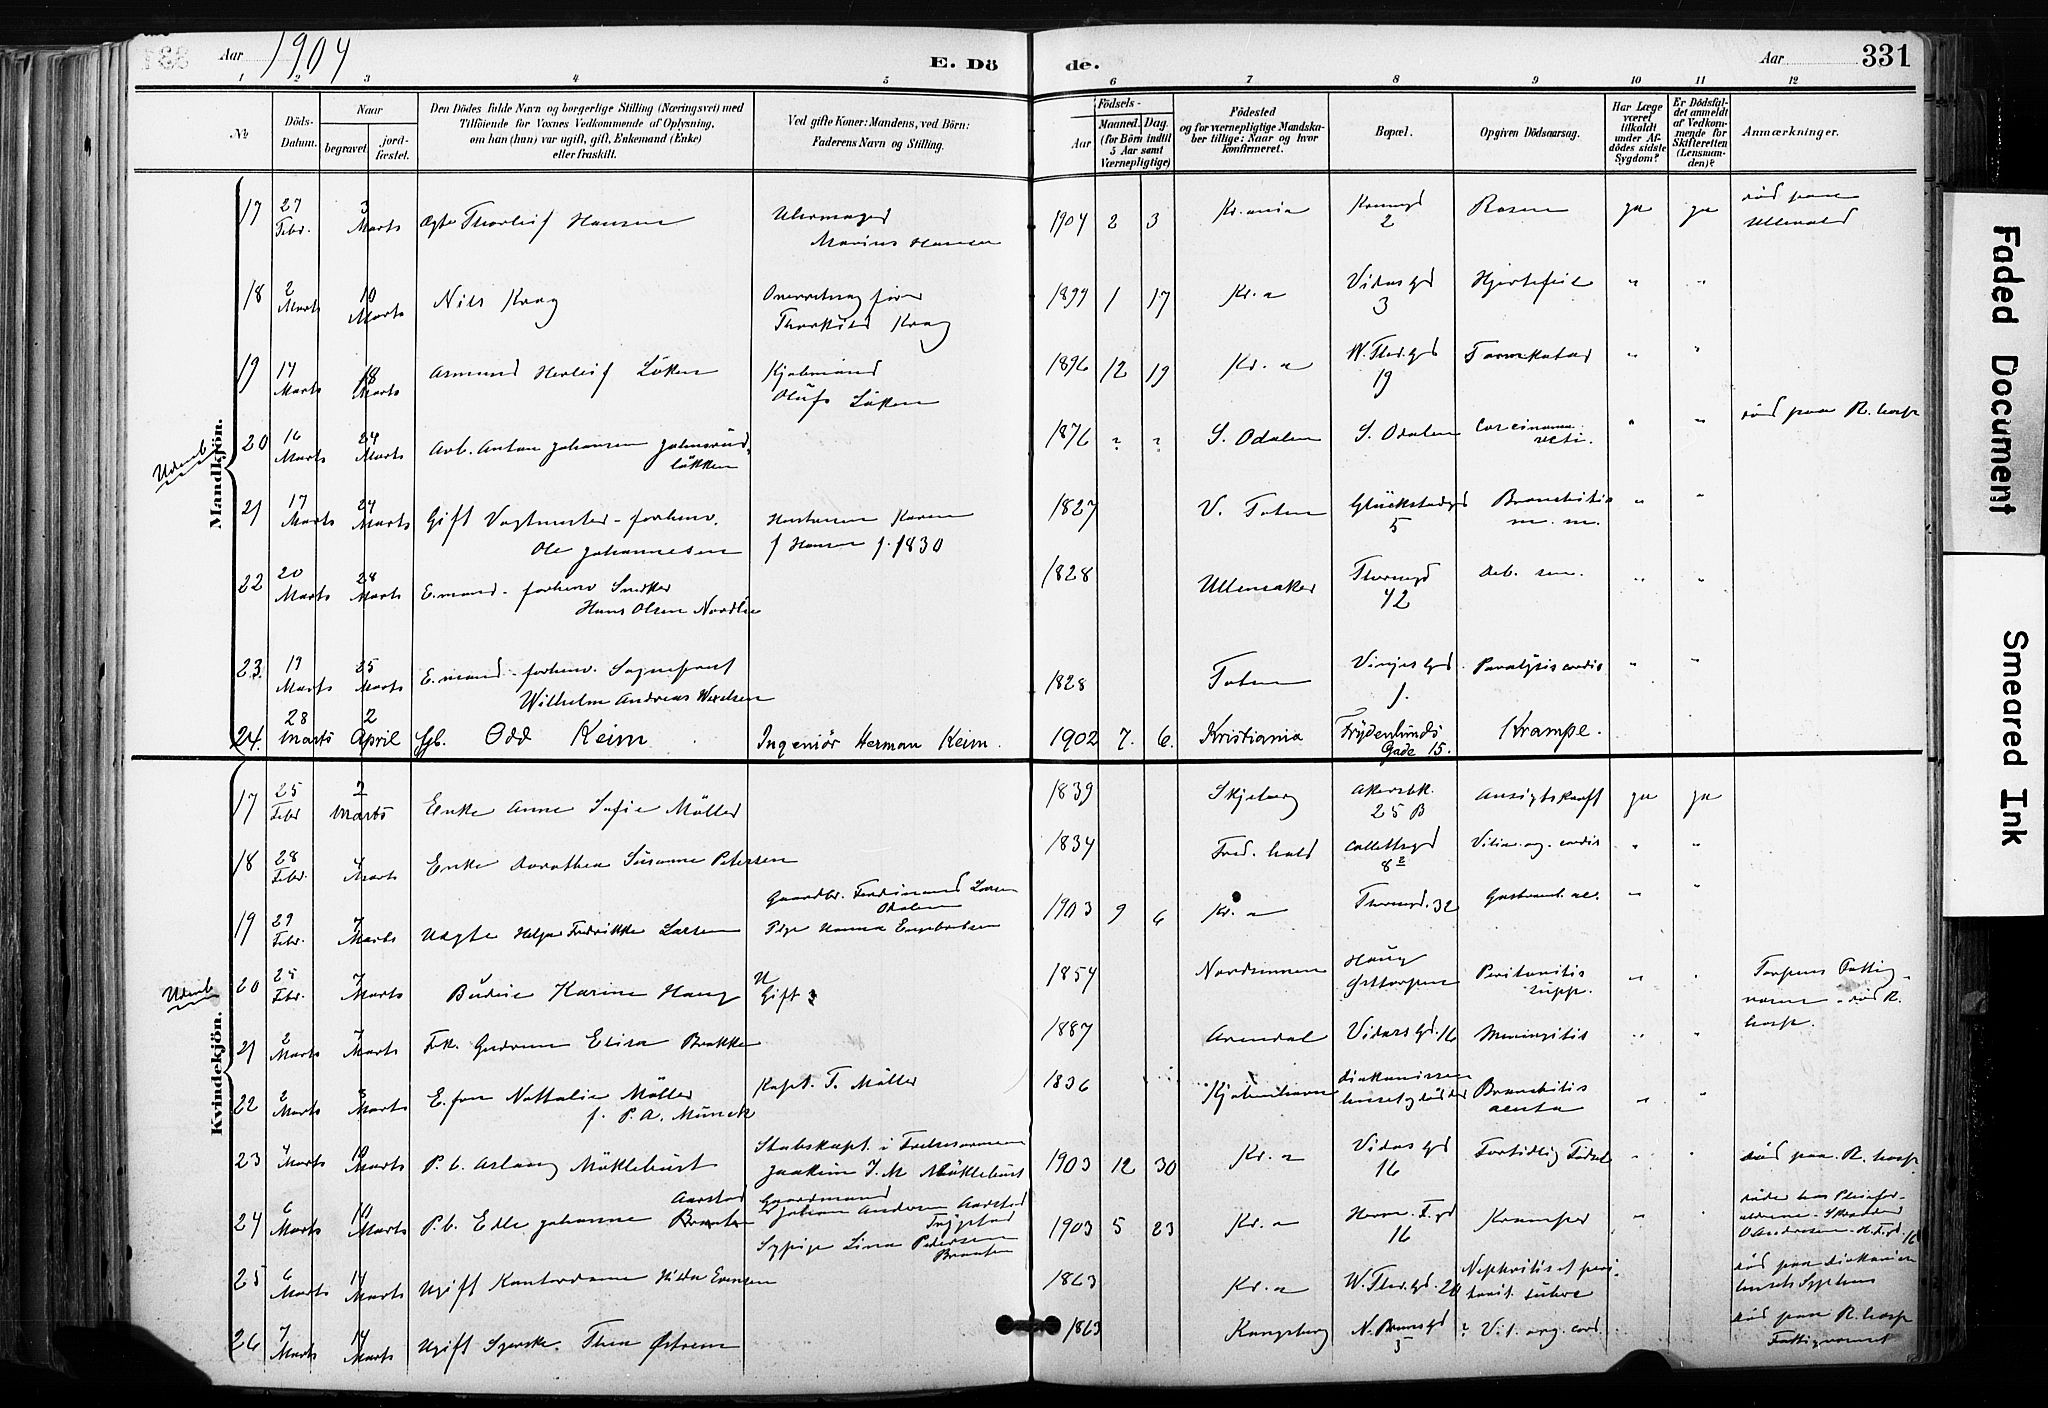 Aar 1904
E. Dö de.
Aar 331
1 2 3 4 5 6 7 8 9 10 11 12
№
Döds-Datum.
Naar
begravet.
jord-fæstet.
Den Dödes fulde Navn og borgerlige Stilling (Næringsvei) med
Tilföiende for Voxnes Vedkommende af Oplysning,
om han (hun) var ugift, gift, Enkemand (Enke)
eller fraskilt.
Ved gifte Koner: Mandens, ved Börn:
Faderens Navn og Stilling.
Födsels-
Aar
Maaned. Dag.
(for Börn indtil
5 Aar samt
Værnepligtige)
Födested
og for værnepligtige Mandska-
ber tillige: Naar og hvor
konfirmeret.
Bopæl.
Opgiven Dödsaarsag.
Har Læge
været
tilkaldt
under Af-
dödes sidste
Sygdom?
Er Dödsfal-
det anmeldt
af Vedkom-
mende for
Skifteretten
(Lensman-
den)?
Anmærkninger.
Mandkjön.
17 27 Febr. 3 Marts Ægte Thorleif Hansen Uhrmager Marius Hansen 1904 2 3 Kr.ania 2 ja ja död paa Ullevold
18 2 Marts 10 Marts Nils Krag Thorkild Krag 1899 1 17 Kr.a Vidarsgd 3 Hjertefeil " "
19 14 Marts 18 Marts Asmund Herleif Löken Kjöbmand Oluf Löken 1896 12 19 Kr.a W. Thr.gd 19 Tarmkatar " "
Udenb
20 16 Marts 24 Marts Arb. Anton Johansen Johnsrud-
lökken 1876 ? ? S. Odalen S. Odalen Carcinoma recti. " " död paa R. hosp
21 17 Marts 24 Marts Gift Vagtmester - forhenv.
Ole Johannesen Hustruen Karen
f Hansen f. 1830 1827 V. Toten Glückstadgd 5 Bronchitis m. m. " "
22 20 Marts 28 Marts E.mand - forhenv Snedker
Hans Olsen Nordlie 1828 Ullensaker Theresgd 42 Deb. sen. " "
23. 19 Marts 25 Marts E.mand - forhenv. Sogneprest
Wilhelm Andreas Wexelsen 1828 Toten 1. Paralysis cordis " "
24. 28 Marts 2 April Egb. Odd Keim Ingeniör Herman Keim. 1902 7. 6. Kristiania Frydenlunds
Gade 15. Krampe.
Kvindekjön.
17 25 Febr 2 Marts Enke Anne Sofie Möller 1839 Skjeberg Akersbk. 25 B Ansigtskræft ja ja
18 28 Febr. 4 Marts Enke Dorothea Susanne Petersen 1834 Fred.hald Collettsgd 8 Vitium org. cordis " "
19 29 Febr. 7 Marts Uægte Helga Fredrikke Larsen Gaardbr. Ferdinand Larsen
Odalen
Pige Hanna Engebretsen 1903 9 6 Kr.a Theresgd. 32 " "
Udenb
20 25 Febr. 7 Marts Karine Haug U
Gift ? 1854 Nordsinnen Haug
Peritonitis
supp. " " Torpens Fattig-
væsen - död R.
hosp.
21 2 Marts 7 Marts Frk. Gudrun Elisa Brekke 1887 Arendal Vidarsgd. 16 Meningitis " "
22 2 Marts 8 Marts E. frue Nathalie Möller
f. P. A. Munch Kapt. T. Möller 1836 Kjöbenhavn Diakonissen-
Bronchitis
acuta " "
23 4 Marts 10 Marts P. b. Aslaug Möklebust Stabskapt. i Frelsesarmeen
Joakim J. M Möklebust 1903 12 30 Kr.a Vidarsgd 16 Fortidlig Födsel " " död paa R. hosp.
24 6 Marts 10 Marts P. b. Edle Johanne Aarstad
Braaten Gaardmand
Johan Andersen Aarstad
Trygstad
Sypige Lina Pedersen
Braaten 1903 5 23 Kr.a Herm. F.gd 16 Krampe " " döde hos Pleiefor-
ældrene - Skrædder
O Andersen - H. F.gd. 16
25 6 Marts 14 Marts Ugift Kontordame Hilda Evensen 1863 Kr.a W. Thr.gd. 20 Nephritis et peri-
död paa Diakonis-
husets Sygehus
26 7 Marts 14 Marts Ugift Syerske. Thea Østrem 1863 Kongsberg N. Brunsgd 5 ? V. t. org. cord. död paa R. hosp
Fattigvæsnet
Faded Document
Smeared Ink